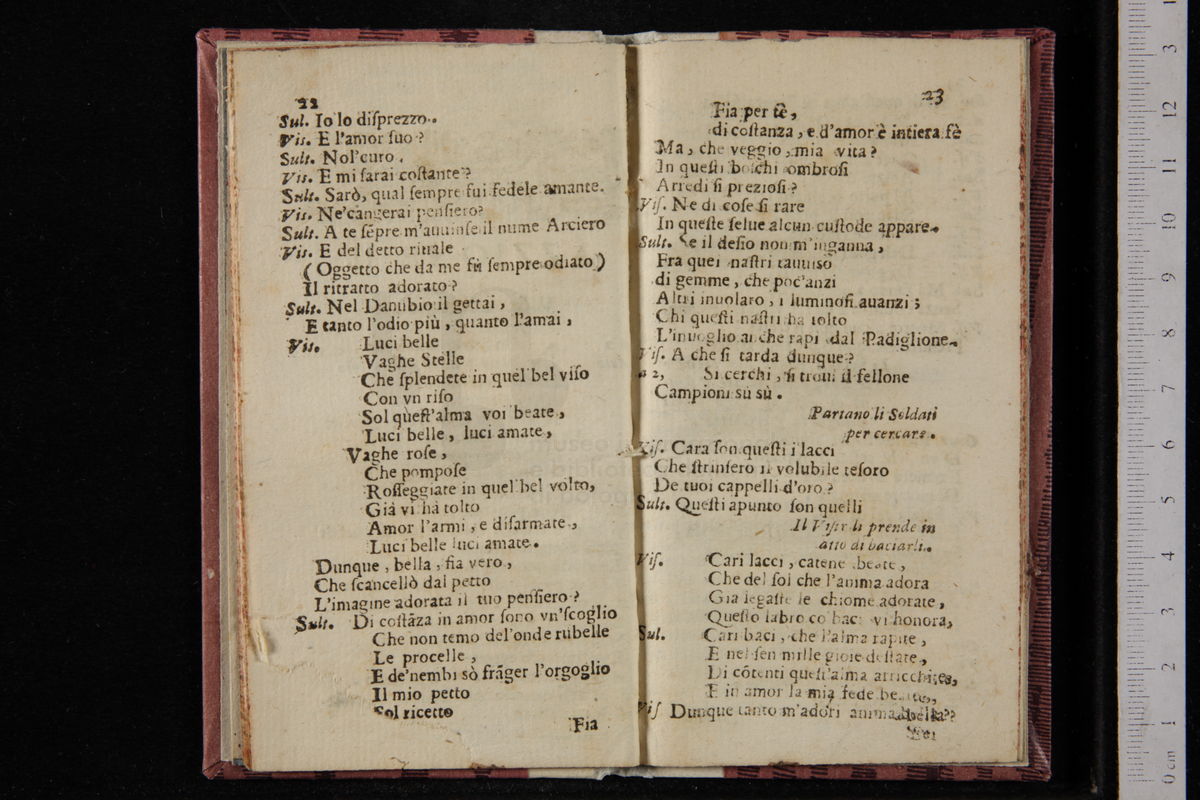 22
Sul. Io lo diſprezzo.
Vis. E l'amor ſuo?
Sult. Nol'curo.
Vis. E mi ſarai coſtante?
Sult. Sarò, qual ſempre fui fedele amante.
Vis. Ne'cangerai penſiero?
Sult. A te ſẽpre m'auuinſe il nume Arciero
Vis. E del detto riuale
(Oggetto che da me fù ſempre odiato)
Il ritratto adorato?
Sult. Nel Danubio il gettai,
E tanto l'odio più, quanto l'amai,
Vis. Luci belle
Vaghe Stelle
Che ſplendete in quel bel viſo
Con vn riſo
Sol queſt'alma voi beate,
Luci belle, luci amate,
Vaghe roſe,
Che pompoſe
Roſſeggiate in quel bel volto,
Già vi hà tolto
Amor l'armi, e diſarmate,
Luci belle luci amate.
Dunque, bella, ſia vero,
Che ſcancellò dal petto
L'imagine adorata il tuo penſiero?
Sult. Di coſtãza in amor ſono vn'ſcoglio
Che non temo del'onde rubelle
Le procelle,
E de'nembi sò frãger l'orgoglio
Il mio petto
Sol ricetto
Fia
23
Fia per tè,
di coſtanza, e d'amor è intiera fè
Ma, che veggio, mia vita?
In queſti boſchi ombroſi
Arredi ſi prezioſi?
Viſ. Ne di coſe ſi rare
In queſte ſelue alcun cuſtode appare.
Sult. Se il deſio non m'inganna,
Fra quei naſtri rauuiso
di gemme, che poc'anzi
Altri inuolaro, i luminoſi auanzi;
Chi queſti naſtri ha tolto
L'inuoglio anche rapì dal Padiglione.
Viſ. A che ſi tarda dunque?
a 2, Si cerchi, ſi troui il fellone
Campioni sù sù.
Partano li Soldati
per cercare.
Viſ. Cara ſon queſti i lacci
Che ſtrinſero il volubile teſoro
De tuoi cappelli d'oro?
Sult. Queſti apunto ſon quelli
Il Viſir li prende in
atto di baciarli.
Viſ. Cari lacci, catene beate,
Che del ſol che l'anima adora
Gia legaſte le chiome adorate,
Queſto labro co' baci vi honora,
Sul. Cari baci, che l'alma rapite,
E nel ſen mille gioie deſtate,
Di cõtenti queſt'alma arricchites,
E in amor la mia fede beate,
Viſ Dunque tanto m'adori anima bella?